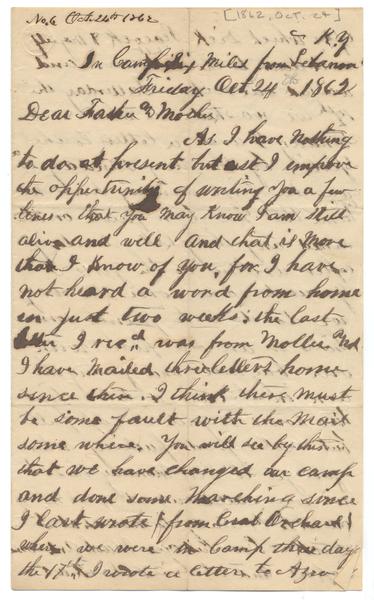 No. 6 Oct. 24th 1862
[1862, OCT. 24]
K.Y
In Camp Six Miles from Lebanon
Friday Oct. 24th 1862
Dear Father & Mother
As I have nothing
to do at present but rest I improve
the oppertunity of writing you a few
lines that you may know I am still
alive and well and that is more
than I know of you, for I have
not heard a word from home
in just two weeks. the last
letter I recd was from Mollie and
I have mailed three letters home
since then. I think there must
be some fault with the Mail
some where. You will see by this
that we have changed our camp
and done some marching since
I last wrote (from Crab Orchard)
where we were in Camp three days
the 17th I wrote a letter to Azro